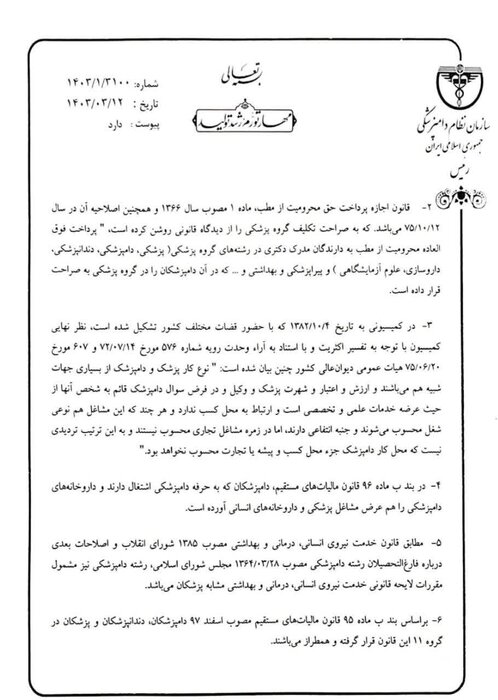 بسمه تعالی
مهار تورم رشد تولید
شماره: ۱۴۰۳/۱/۳۱۰۰
تاریخ : ۱۴۰۳/۰۳/۱۲
پیوست : دارد
سازمان نظام دامپزشکی
جمهوری اسلامی ایران
رئیس
۲- قانون اجازه پرداخت حق محرومیت از مطب، ماده ۱ مصوب سال ۱۳۶۶ و همچنین اصلاحیه آن در سال
۷۵/۱۰/۱۲ می‌باشد. که به صراحت تکلیف گروه پزشکی را از دیدگاه قانونی روشن کرده است، " پرداخت فوق
العاده محرومیت از مطب به دارندگان مدرک دکتری در رشته‌های گروه پزشکی( پزشکی، دامپزشکی، دندانپزشکی،
داروسازی، علوم آزمایشگاهی ) و پیراپزشکی و بهداشتی و ... که در آن دامپزشکان را در گروه پزشکی به صراحت
قرار داده است.
۳- در کمیسیونی به تاریخ ۱۳۸۲/۱۰/۴ که با حضور قضات مختلف کشور تشکیل شده است، نظر نهایی
کمیسیون با توجه به تفسیر اکثریت و با استناد به آراء وحدت رویه شماره ۵۷۶ مورخ ۷۲/۰۷/۱۴ و ۶۰۷ مورخ
۷۵/۰۶/۲۰ هیات عمومی دیوان‌عالی کشور چنین بیان شده است: " نوع کار پزشک و دامپزشک از بسیاری جهات
شبیه هم می‌باشند و ارزش و اعتبار و شهرت پزشک و وکیل و در فرض سوال دامپزشک قائم به شخص آنها از
حیث عرضه خدمات علمی و تخصصی است و ارتباط به محل کسب ندارد و هر چند که این مشاغل هم نوعی
شغل محسوب می‌شوند و جنبه انتفاعی دارند، اما در زمره مشاغل تجاری محسوب نیستند و به این ترتیب تردیدی
نیست که محل کار دامپزشک جزء محل کسب و پیشه یا تجارت محسوب نخواهد بود."
۴- در بند ب ماده ۹۶ قانون مالیات‌های مستقیم، دامپزشکان که به حرفه دامپزشکی اشتغال دارند و داروخانه‌های
دامپزشکی را هم عرض مشاغل پزشکی و داروخانه‌های انسانی آورده است.
۵- مطابق قانون خدمت نیروی انسانی، درمانی و بهداشتی مصوب ۱۳۸۵ شورای انقلاب و اصلاحات بعدی
درباره فارغ‌التحصیلان رشته دامپزشکی مصوب ۱۳۶۴/۰۳/۲۸ مجلس شورای اسلامی، رشته دامپزشکی نیز مشمول
مقررات لایحه قانونی خدمت نیروی انسانی، درمانی و بهداشتی مشابه پزشکان می‌باشد.
۶- براساس بند ب ماده ۹۵ قانون مالیات‌های مستقیم مصوب اسفند ۹۷ دامپزشکان، دندانپزشکان و پزشکان در
گروه ۱۱ این قانون قرار گرفته و همطراز می‌باشند.